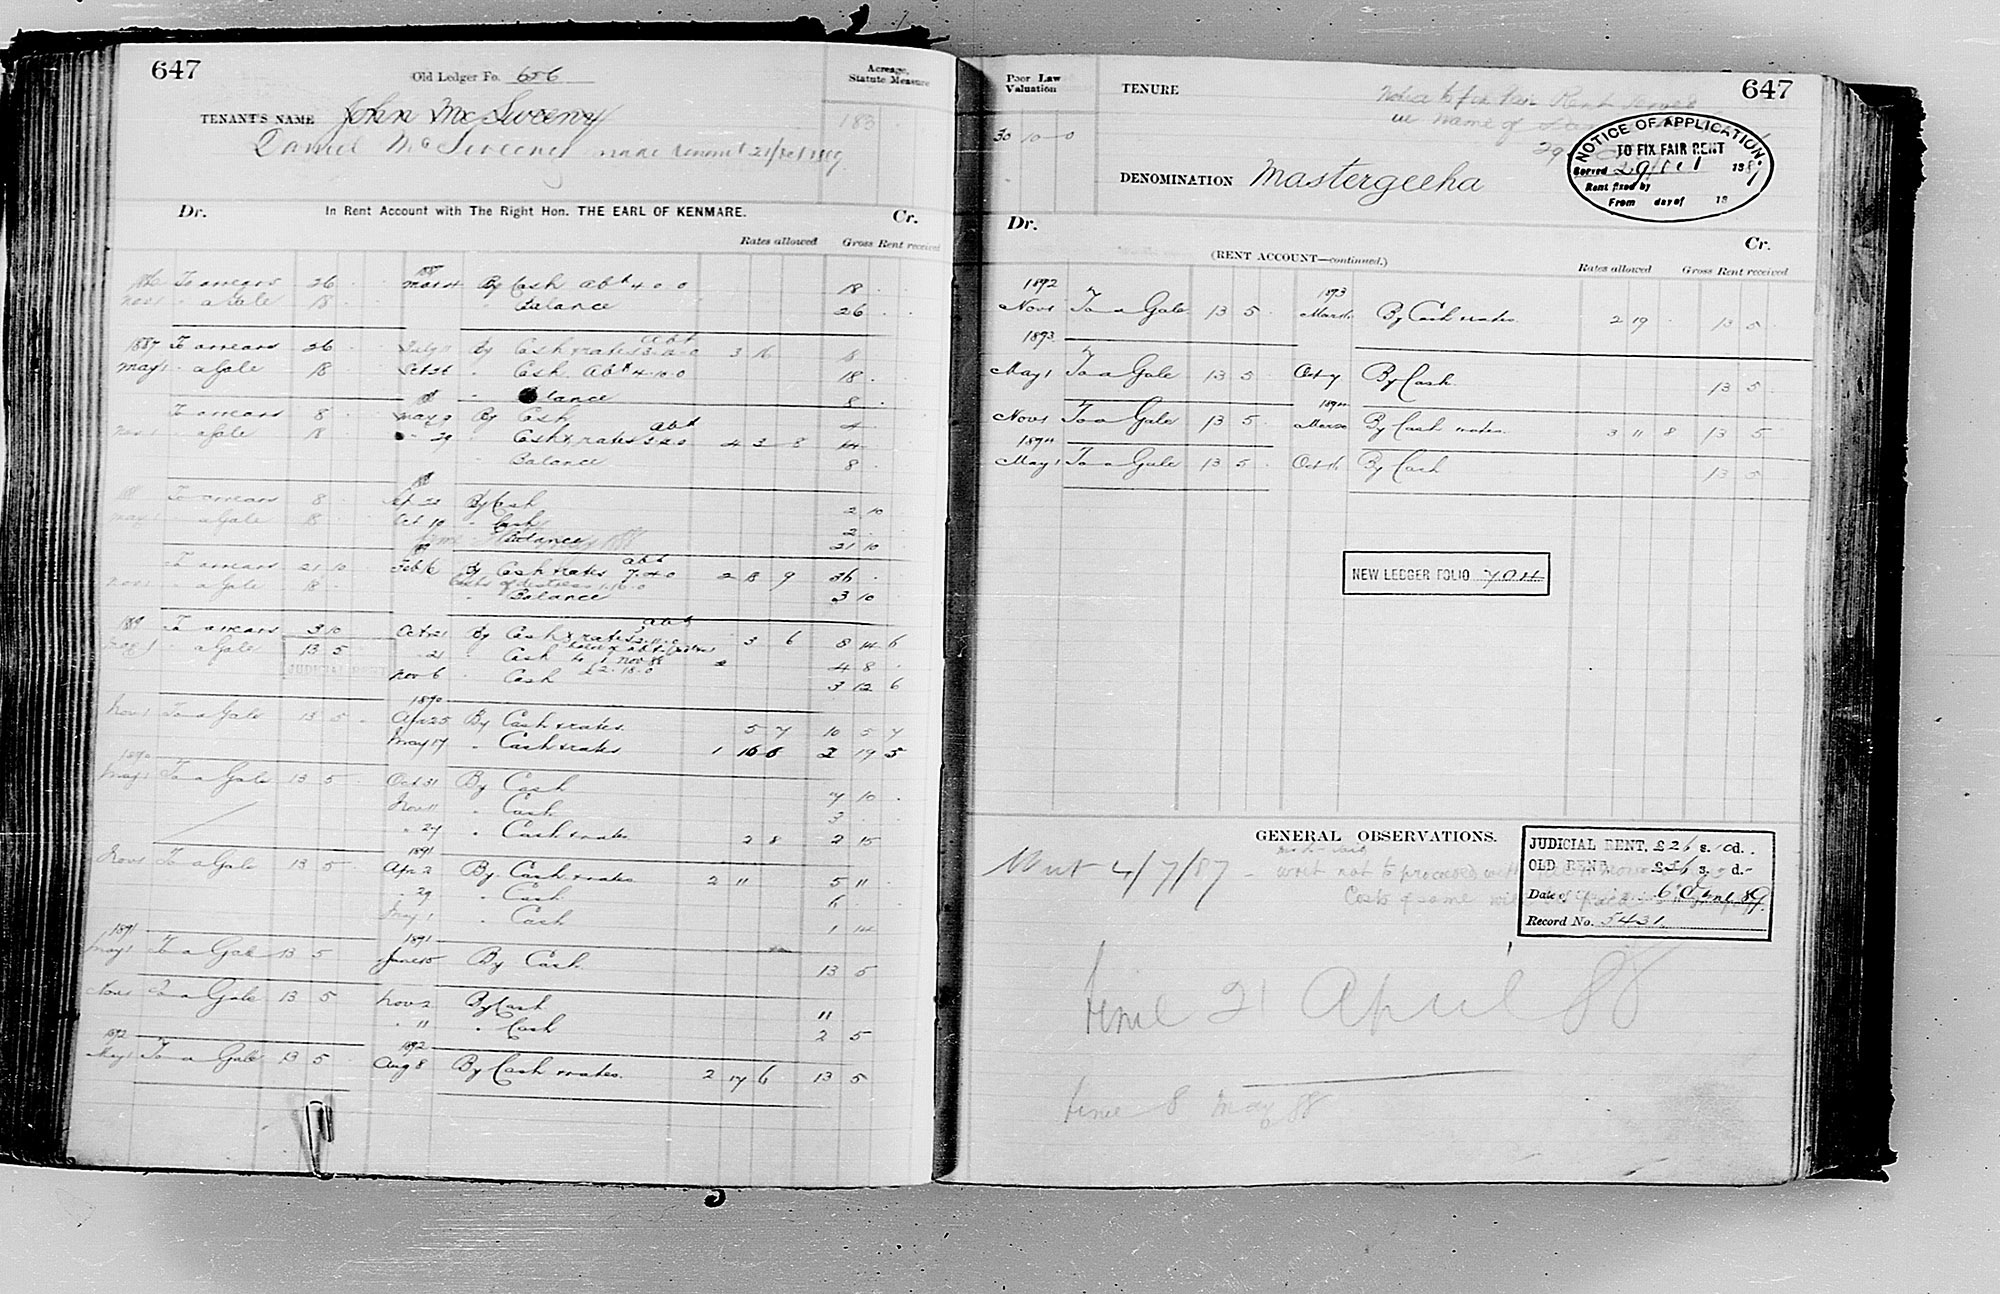 647
Old Ledger Fo. 656
Acreage, Statute Measure
TENANT'S NAME John McSweeny
183
Daniel McSweeney made tenant 21/Oct 1889
Dr. In Rent Account with The Right Hon. THE EARL OF KENMARE. Cr.
Rates allowed Gross Rent received
1886 To arrears 26 1887 By Cash abt 4.0.0 18
Nov 1 " a Gale 18 " Balance 26
1887 To arrears 26 By Cash & rates abt 3 16 18
May 1 " a Gale 18 " Cash abt 4.0.0 18
" Balance 8
To arrears 8 May 9 By Cash 4
Nov 1 " a Gale 18 " 29 Cash & rates abt 4 3 8 14
Balance 8
To arrears 8 By Cash 2 10
May 1 " a Gale 18 Oct 10 " Cash 2
Balance 21 10
To arrears 21 10 Feb 6 By Cash & rates abt 7.4.0 2 18 9 36
Nov 1 " a Gale 18 Costs of distress 1.10.0
" Balance 3 10
1889 To arrears 3 10 Oct 21 By Cash & rates abt 3 6 8 14 6
May 1 " a Gale 13 5 " 21 " Cash to 1 Nov 88 4 8
JUDICIAL RENT Nov 6 " Cash £2.18.0 3 12 6
1890
Nov 1 To a Gale 13 5 Apr 25 By Cash & rates 5 7 10 5 7
May 17 " Cash & rates 1 16 6 2 19 5
1890
May 1 To a Gale 13 5 Oct 31 By Cash 7 10
Nov 11 " Cash 3
" 27 " Cash & rates 2 8 2 15
1891
Nov 1 To a Gale 13 5 Apr 2 By Cash & rates 2 11 5 11
" 29 " Cash 6
May 1 " Cash 1 14
1891 1891
May 1 To a Gale 13 5 June 15 By Cash 13 5
Nov 1 To a Gale 13 5 Nov 2 By Cash 11
" 11 " Cash 2 5
1892 1892
May 1 To a Gale 13 5 Aug 8 By Cash & rates 2 17 6 13 5
Poor Law Valuation
TENURE
647
Notice to fix Fair Rent served
in name of
NOTICE OF APPLICATION
TO FIX FAIR RENT
Served 29 Oct 1887
Rent fixed by
From day of 18
10 0
DENOMINATION Mastergeeha
Dr. Cr.
(RENT ACCOUNT—continued.)
Rates allowed Gross Rent received
1892 1893
Nov 1 To a Gale 13 5 March By Cash & rates 2 19 13 5
1893
May 1 To a Gale 13 5 Oct 7 By Cash 13 5
1894
Nov 1 To a Gale 13 5 By Cash & rates 3 11 8 13 5
1894
May 1 To a Gale 13 5 Oct 16 By Cash 13 5
NEW LEDGER FOLIO 704
GENERAL OBSERVATIONS.
Writ 4/7/87 - writ not to proceed with
Costs of same
JUDICIAL RENT, £26 s. 10 d.
OLD RENT, £36 s. d.
Date of 6 89
Record No. 5431
time 21 April 88
time 8 May 88